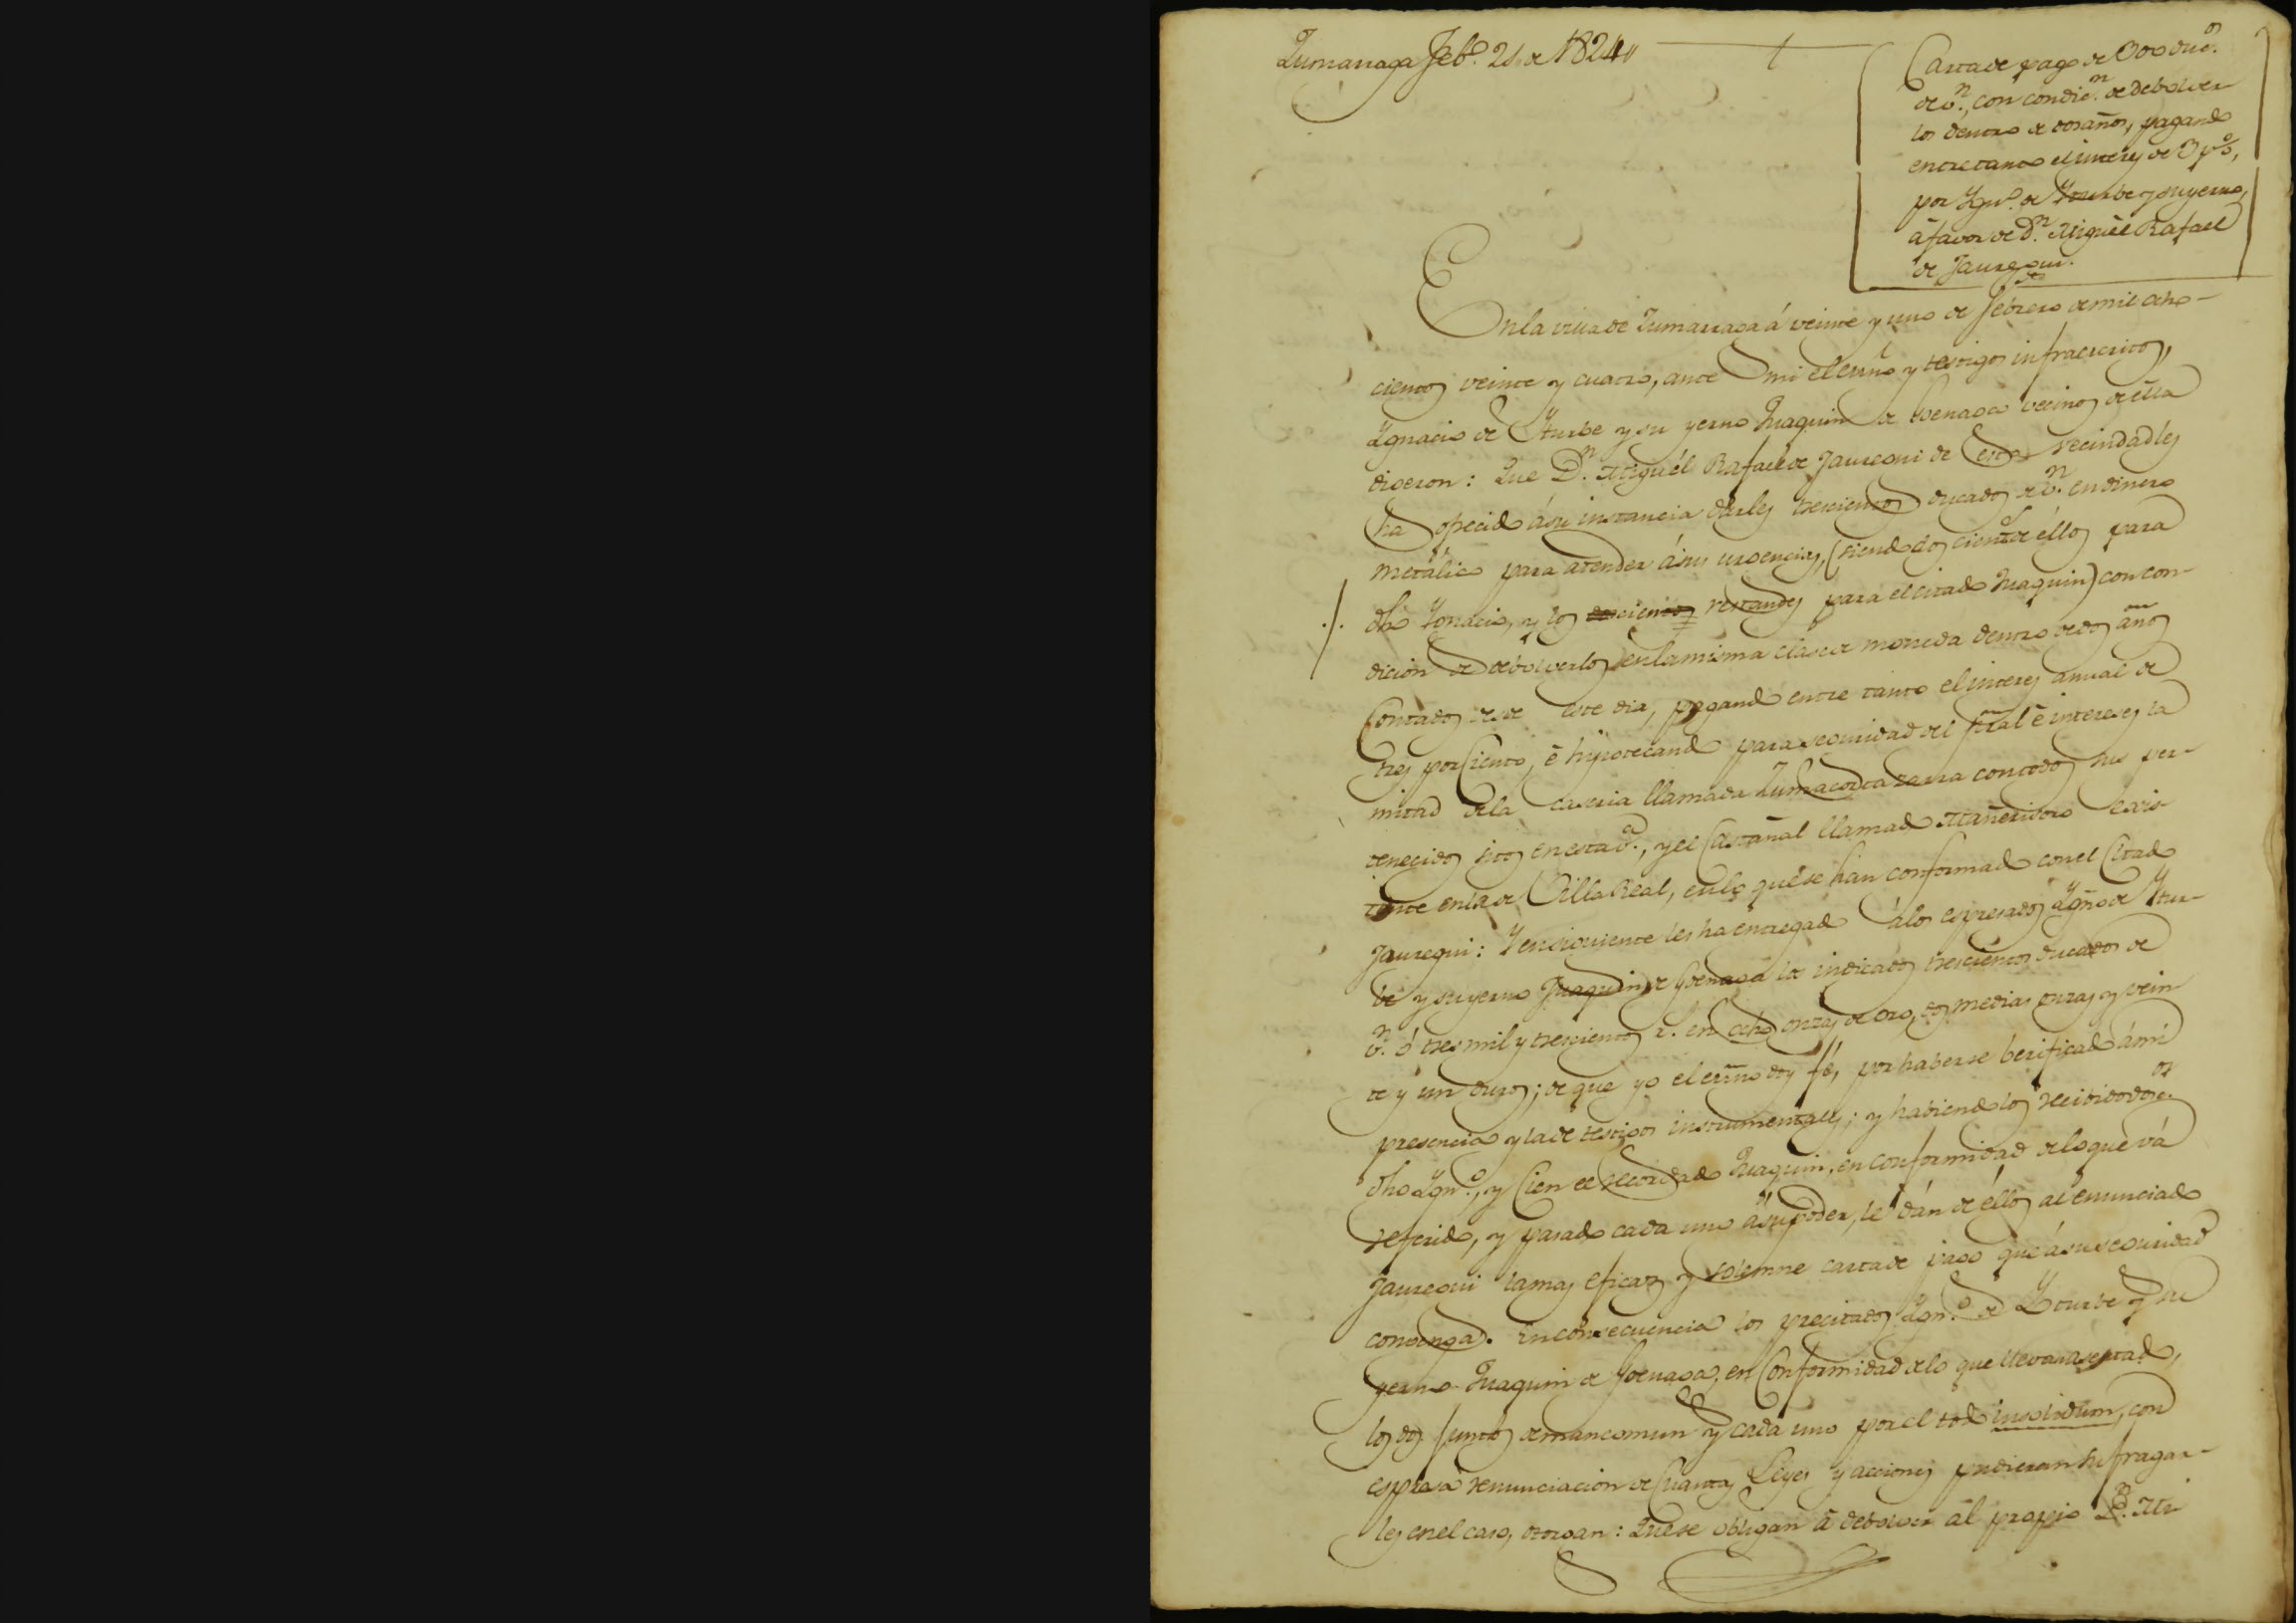 Zumarraga Feb.º 21 de 1824
Carta de pago de 300 duc.os
de v.n, con condic.n de debolver
los dentro de dos años, pagando
entretanto el interes de 3 p%,
por Ygn.º de Yturbe y su yerno,
á favor de D.n Miguél Rafael
de Jauregui.
En la villa de Zumarraga á veinte y uno de febrero de mil ocho-
cientos veinte y cuatro, ante mi el esñno y testigos infraescritos,
Ygnacio de Yturbe y su yerno Juaquin de vecinos de ella
digeron: Que D.n Miguél Rafael de Jauregui de esta vecindad les
ha ofrecido á su instancia darles trescientos ducados de v.n en dinero
metálico para atender á sus urgencias, (siendo doscientos de éllos para
dho Ygnacio, y los doscientos restantes para el citado Juaquin) con con-
dicion de debolverlos en la misma clase de moneda dentro de dos años
contados desde este dia, pagando entre tanto el interes anual de
tres por ciento, é hypotecando para seguridad del pral é intereses la
mitad de la caseria llamada con todos sus per-
tenecidos sitos en esta v.ª, y el castañal llamado exis-
tente en la de Villa Real, en lo que se han conformado con el citado
Jauregui: Y en siguiente les ha entregado á los espresados Ygño de Ytur-
be y su yerno Juaquin de los indicados trescientos ducados de
v.n ó tres mil y trescientos r.s en ocho onzas de oro, dos medias onzas y vein-
te y un duros; de que yo el esñno doy fé, por haberse berificado á mi
presencia y la de testigos instrumentales; y habiendo los recibido dosc.os
dho Ygn.º, y cien el recordado Juaquin, en conformidad de lo que vá
referido, y pasado cada uno á su poder, le dán de éllos al enunciado
Jauregui la mas eficaz y solemne carta de pago que á su seguridad
convenga. En consecuencia los precitados Ygn.º de Yturbe y su
yerno Juaquin de en conformidad de lo que llevan aseptado,
los dos juntos de mancomun y cada uno por el todo insolidum, con
espresa renunciacion de cuantas Leyes y acciones pudieran sufragar-
les en el caso, otorgan: Que se obligan á debolver al propio D.n Mi